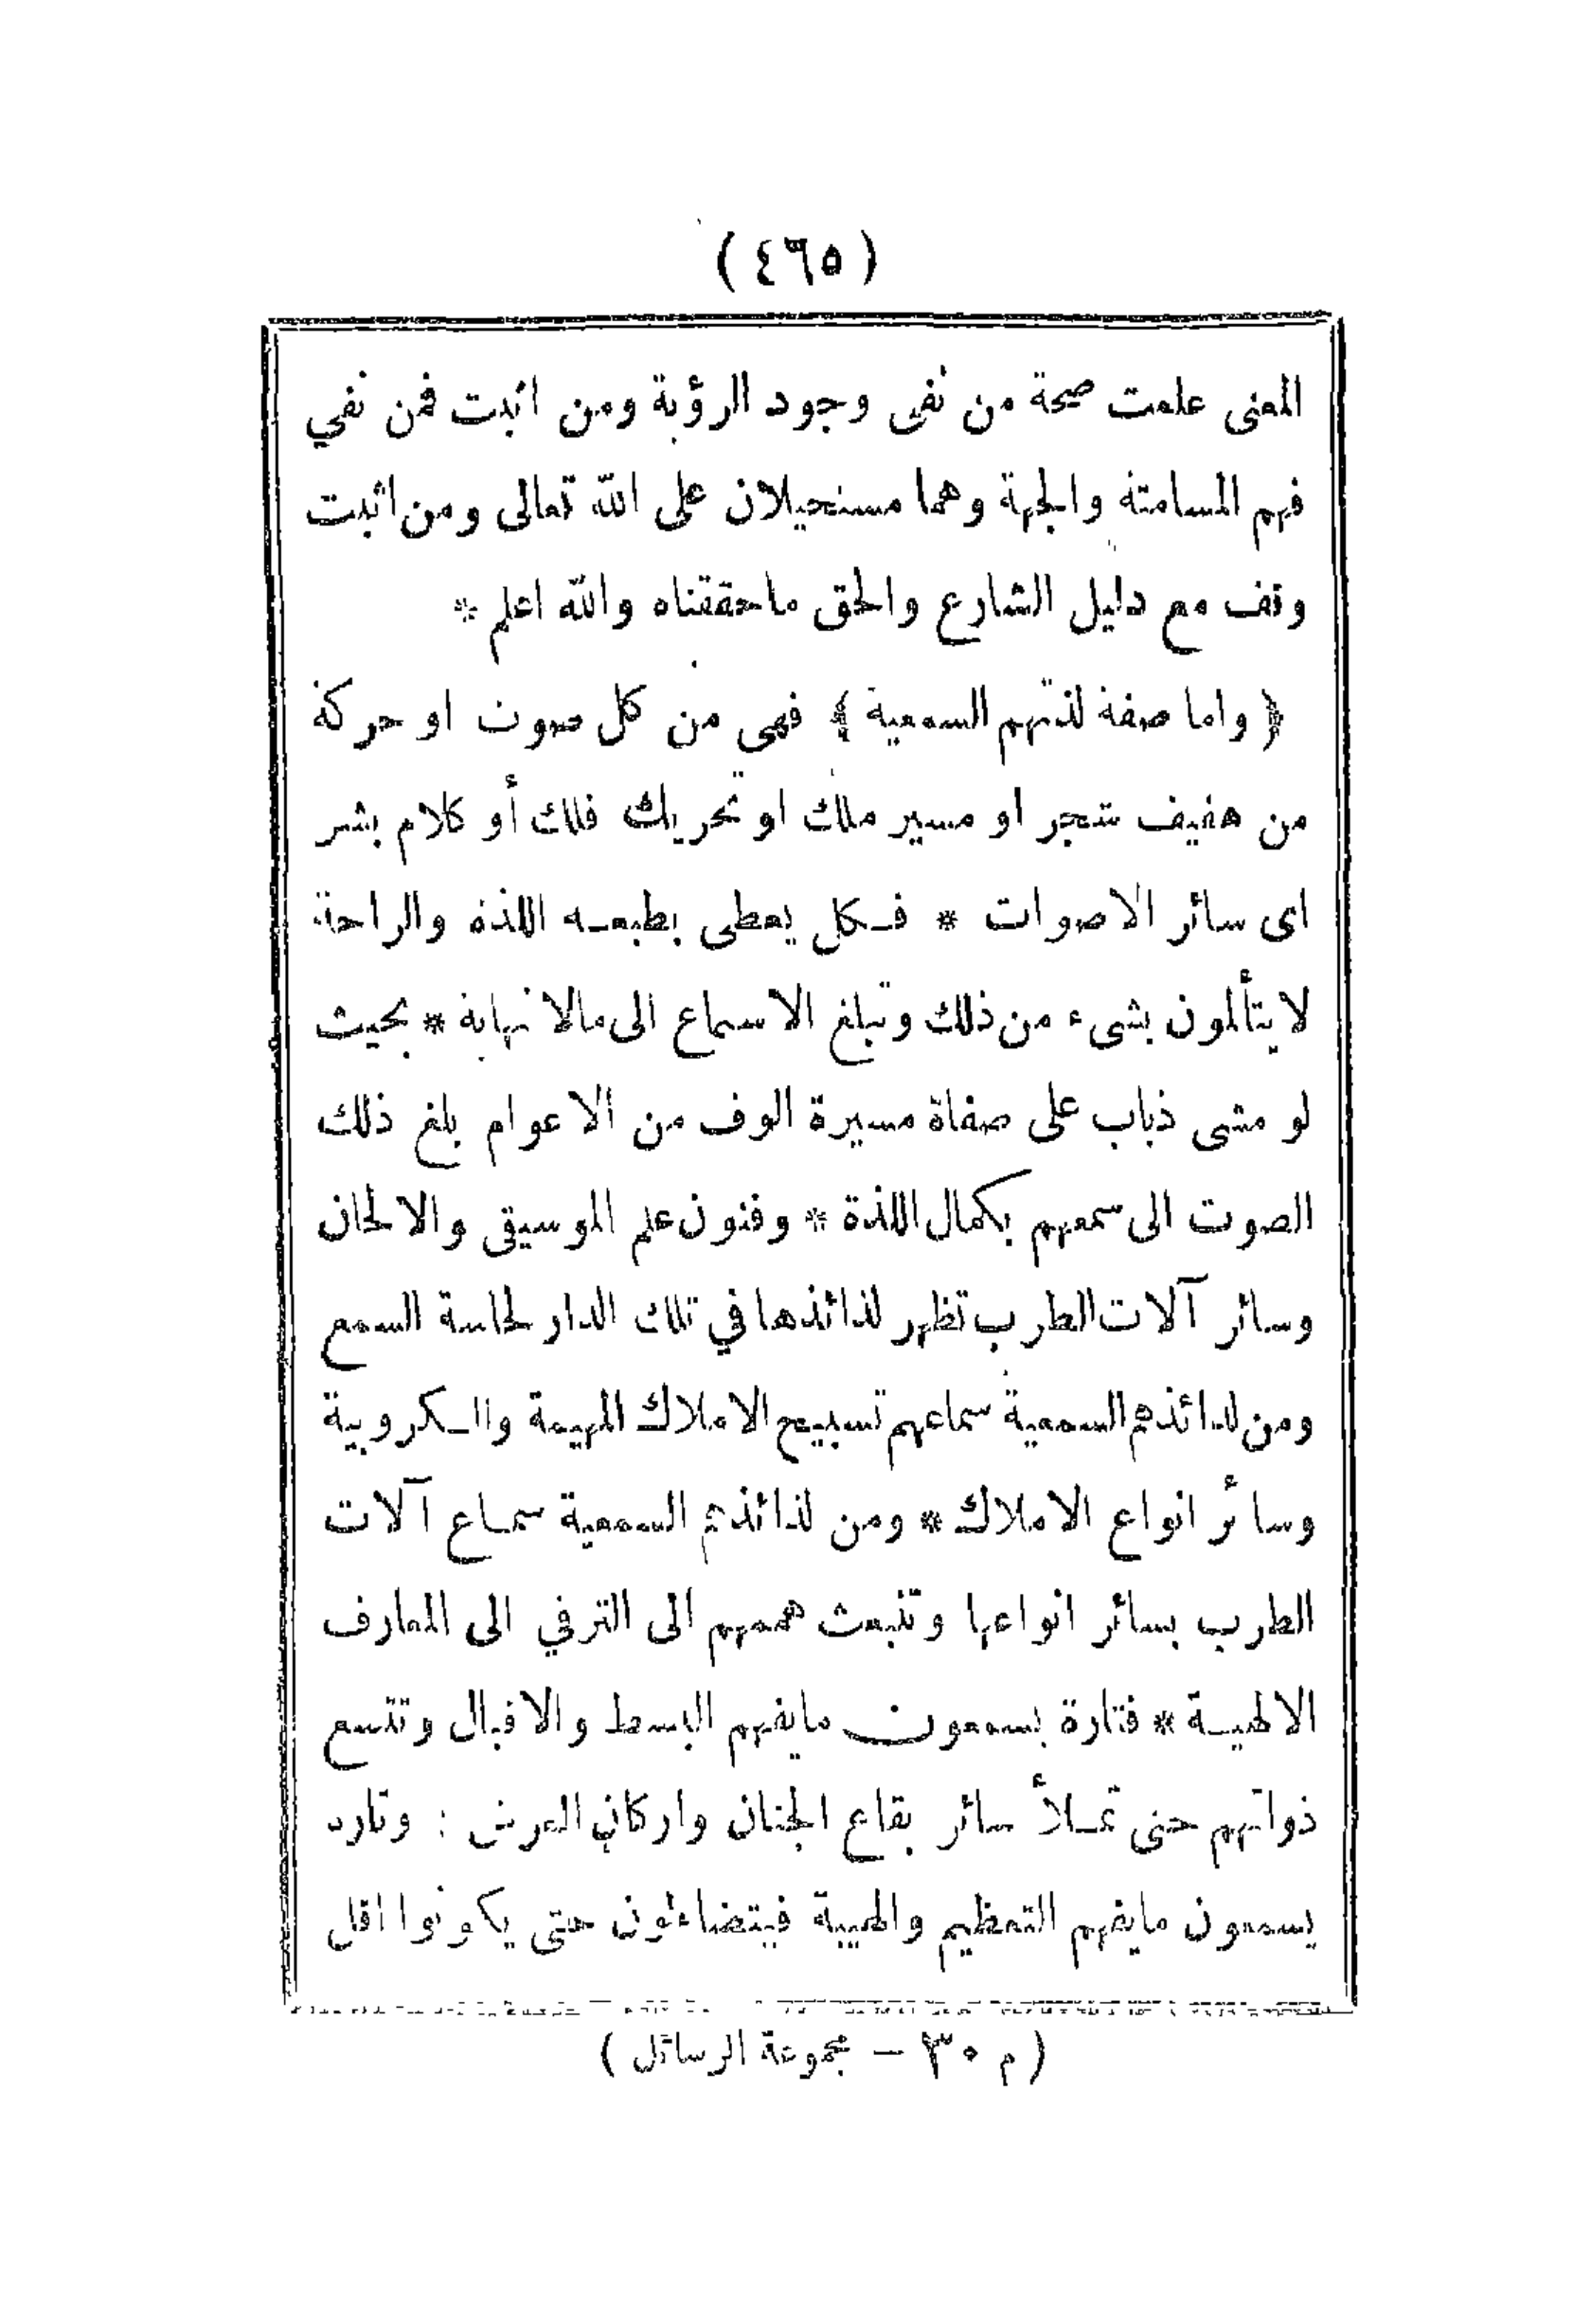 ( ٤٦٥ )
المعنى علمت صحة من نفى وجود الرؤية ومن اثبت فمن نفي
فهم المسامتة والجهة وهما مستحيلان على الله تعالى ومن اثبت
وقف مع دليل الشارع والحق ماحققناه والله اعلم *
﴿ واما صفة لذتهم السمعية ﴾ فهى من كل صوت او حركة
من هفيف شجر او مسير ملك او تحريك فلك أو كلام بشر
اى سائر الاصوات * فكل يعطى بطبعه اللذة والراحة
لا يتألمون بشىء من ذلك وتبلغ الاسماع الى مالا نهاية * بحيث
لو مشى ذباب على صفاة مسيرة الوف من الاعوام بلغ ذلك
الصوت الى سمعهم بكمال اللذة * وفنون علم الموسيقى والالحان
وسائر آلات الطرب تظهر لذائذها في تلك الدار لحاسة السمع
ومن لذائذهم السمعية سماعهم تسبيح الاملاك المهيمة والكروبية
وسائر انواع الاملاك * ومن لذائذهم السمعية سماع آلات
الطرب بسائر انواعها وتنبعث هممهم الى الترقي الى المعارف
الالهية * فتارة يسمعون مايفهم البسط والاقبال وتتسع
ذواتهم حتى تملأ سائر بقاع الجنان واركان العرش : وتارة
يسمعون مايفهم التعظيم والهيبة فيتضاءلون حتى يكونوا اقل
( م ٣٠ – مجموعة الرسائل )